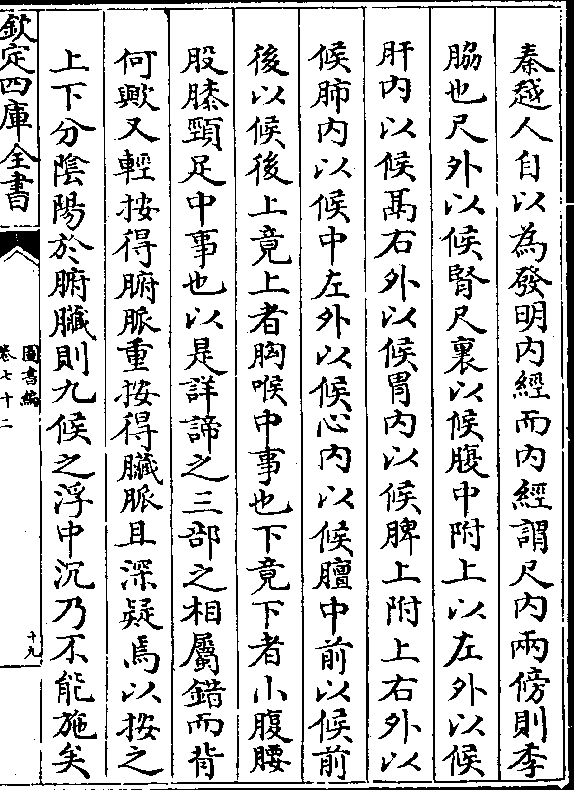 秦越人自以為發明内經而内經謂尺内兩傍則季
脇也尺外以候腎尺裏以候腹中附上以左外以候
肝内以候鬲右外以候胃内以候脾上附上右外以
候肺内以候中左外以候心内以候膻中前以候前
後以候後上竟上者胸喉中事也下竟下者小腹腰
股膝頸足中事也以是詳諦之三部之相屬錯而背
何歟又輕按得腑脈重按得臟脈且深疑焉以按之
上下分陰陽於腑臟則九候之浮中沉乃不能施矣
欽定四庫全書
圖書編
卷七十二
十九